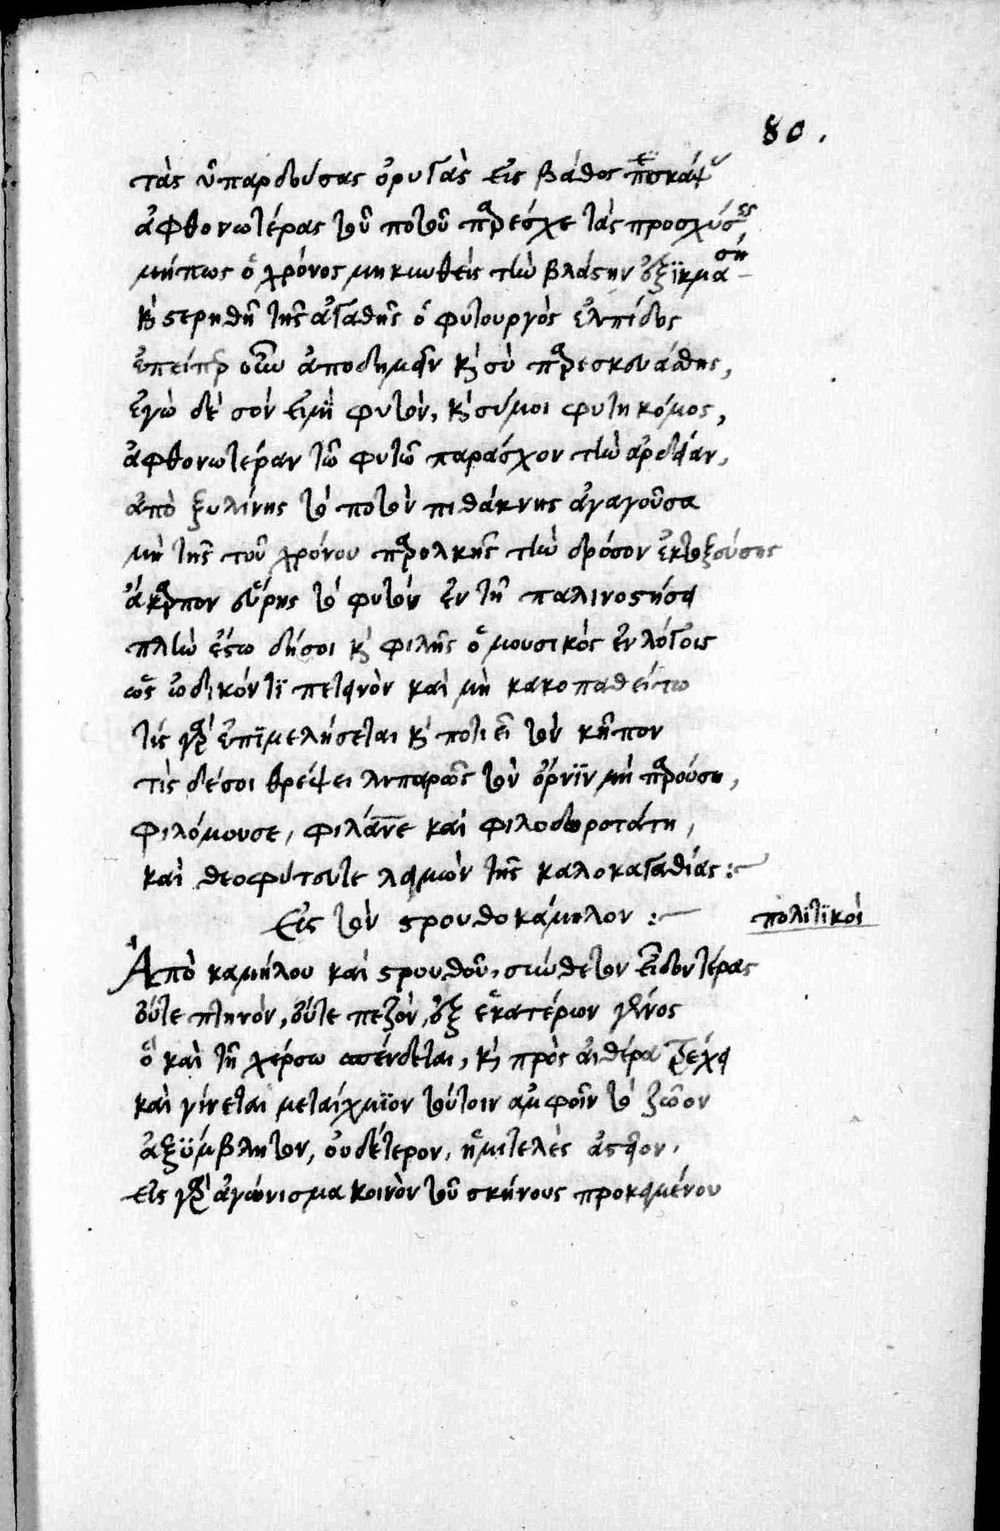 80.
τὰς ὑπαρδούσας ὀρυγὰς εἰς βάθος
ἀφθονωτέρας τοῦ ποτοῦ παρέσχε τὰς προσχύσεις
μήπως ὁ χρόνος μηκυνθεὶς τὴν βλάστην ἐξϊκμάση
καὶ στρηθῆ τῆς ἀγαθῆς ὁ φυτουργὸς ἐλπίδος
ἐπείπερ οὖν ἀποδημεῖν καὶ σὺ παρεσκευάσθης,
ἐγὼ δὲ σόν εἰμϊ φυτόν, καὶ σύ μοι φυτηκόμος,
ἀφθονωτέραν τῶ φυτῶ παράσχου τὴν ἀρδείαν,
ἀπὸ ξυλίνης τὸ ποτὸν πιθάκνης ἀγαγοῦσα
μὴ τῆς τοῦ χρόνου παρολκῆς τὴν δρόσον ἐκτοξευούσης
ἄκαρπον εὕρης τὸ φυτὸν ἐν τῆ παλινοστήσει
πλὴν ἔστω δή σοι καὶ φιλῆς ὁ μουσικὸς ἐν λόγοις
ὡς ὠδικόν τϊ πετεινὸν καὶ μὴ κακοπαθείτω
τίς γὰρ ἐπϊμελήσεται καὶ ποτιεῖ τὸν κῆπον
τὶς δέ σοι θρέψει λιπαρῶς τὸν ὄρνϊν μὴ παρούση,
φιλόμουσε, φιλάνε καὶ φιλοδωροτάτη,
καὶ θεοφύτευτε λειμὼν τῆς καλοκαγαθίας:
Εἰς τὸν στρουθοκάμηλον:
πολϊτϊκοὶ
Ἀπὸ καμήλου καὶ στρουθοῦ, σύνθετον
οὔτε πτηνόν, οὔτε πεζόν, ἐξ ἑκατέρων γένος
ὃ καὶ τῆ χέρσω σπένδεται, καὶ πρὸς αἰθέρα τρέχει
καὶ γίνεται μεταίχμϊον τούτοιν ἀμφοῖν τὸ ζῶον
ἀξϋμβλητον, οὐδέτερον, ἡμιτελὲς
εἰς γὰρ ἀγώνισμα κοινὸν τοῦ σκήνους προκειμένου